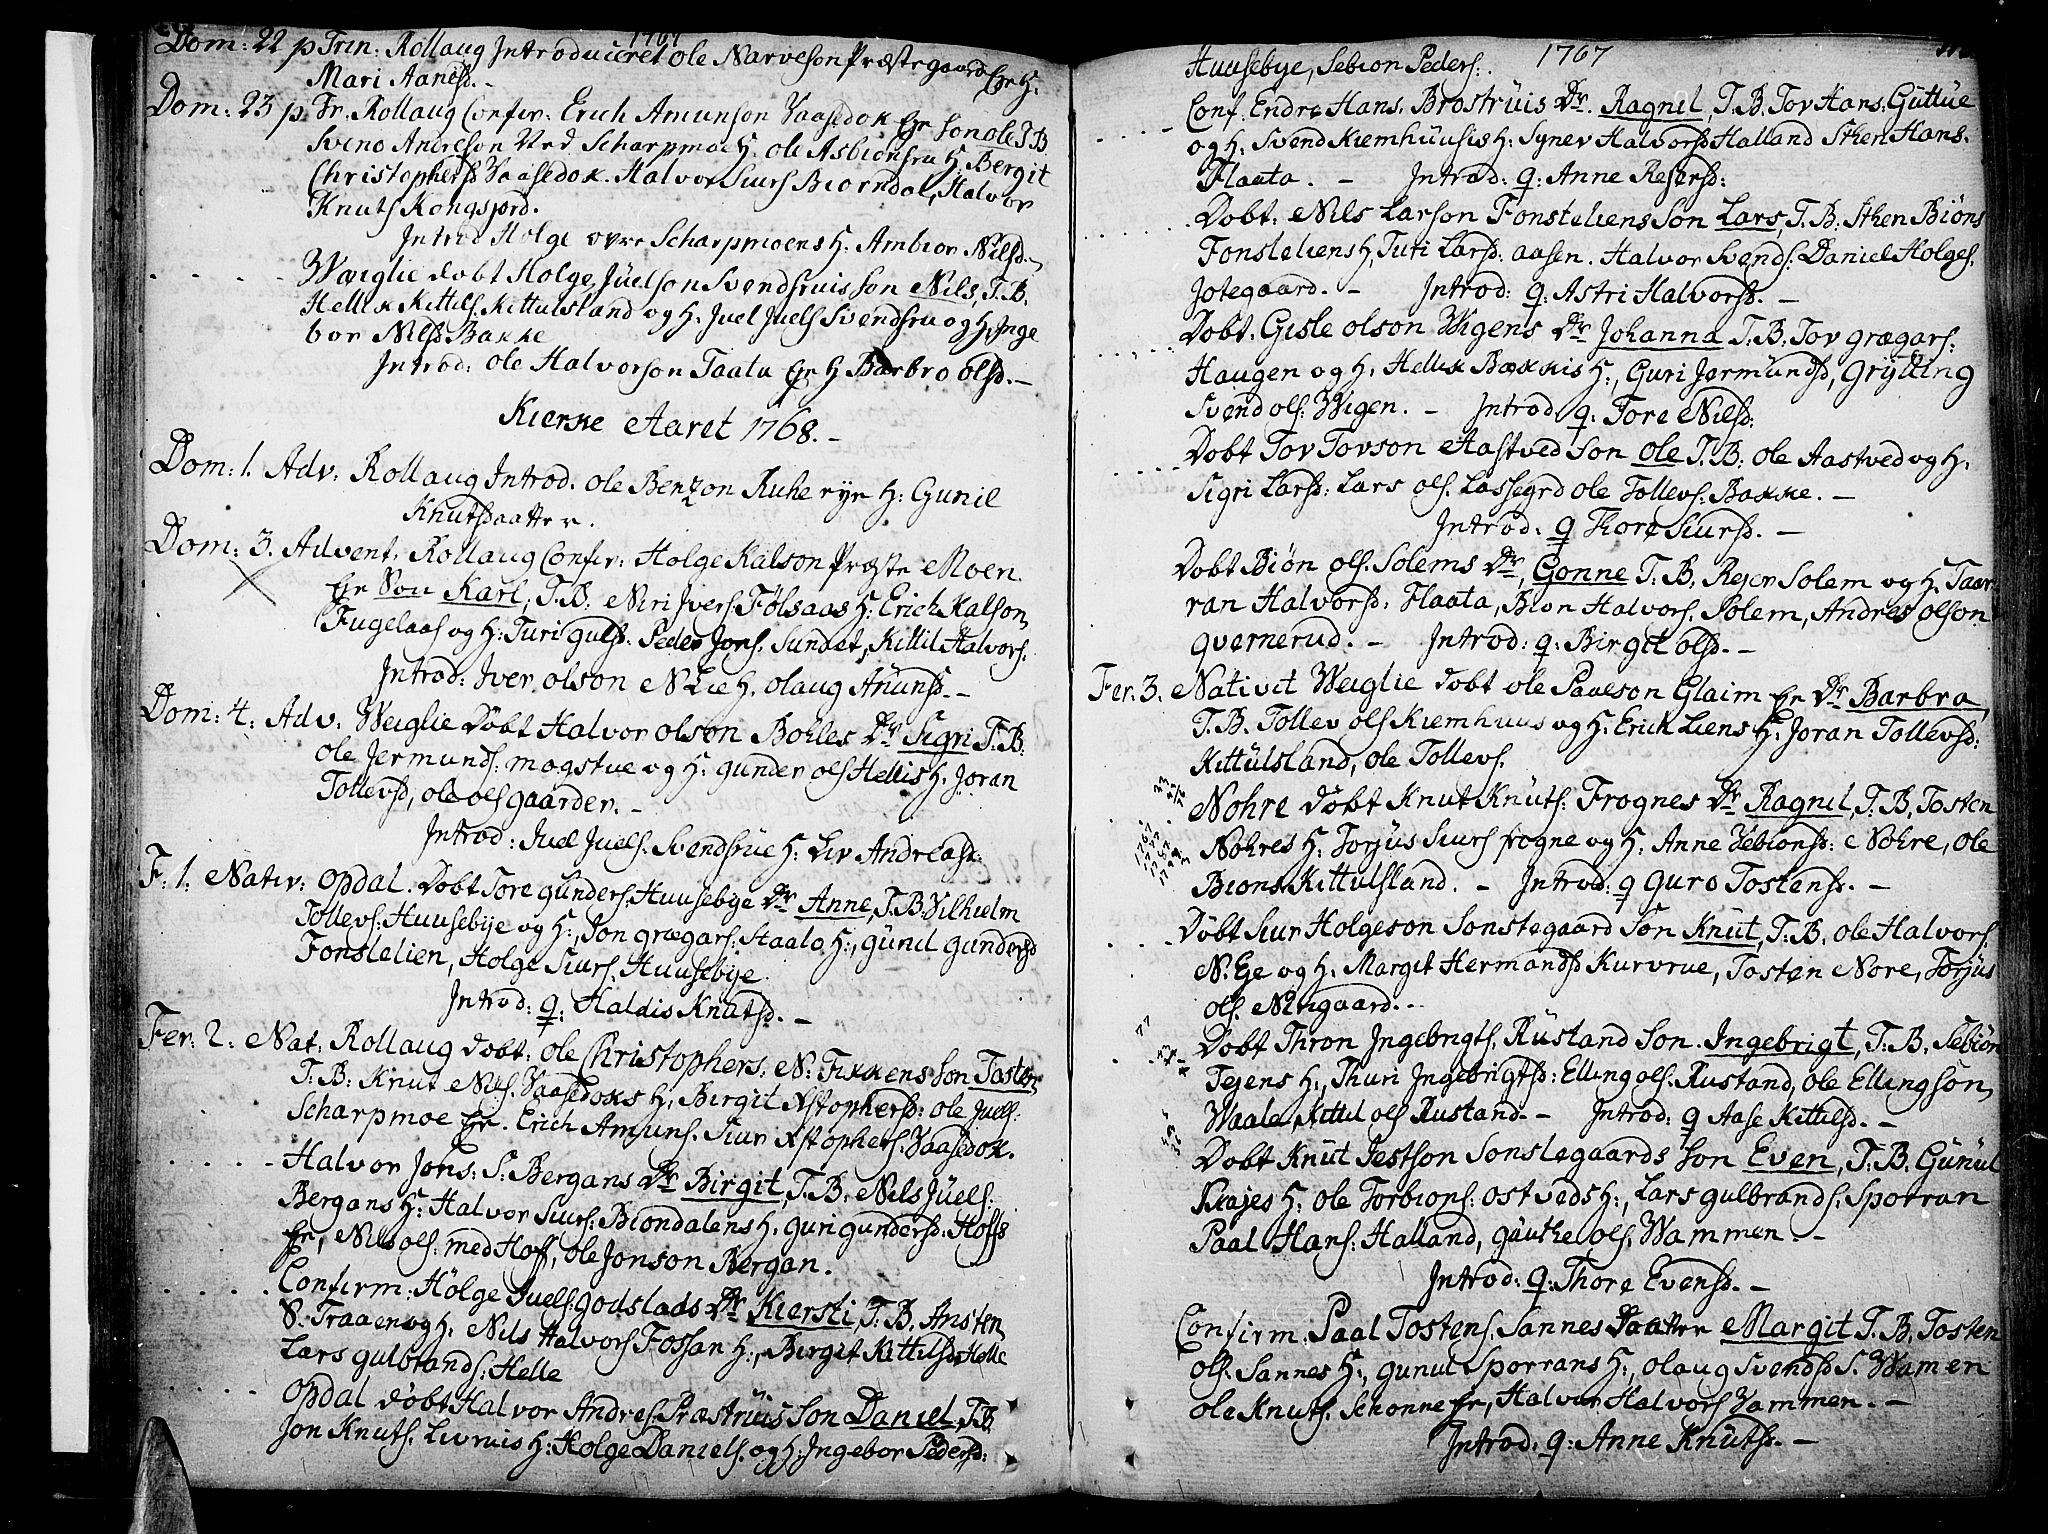 1767
Dom: 22 p Trin: Rollaug Introduceret ole Narveson Præstegaard Eje H.
Mari Aanesd. -
Dom: 23 p. Tr. Rollaug Confir: Erich Amunson Vaasedok Eje Son ole T B
Svend Andreson Ned Scharpmoe H: ole Asbionsru H. Bergit
Christophersd Vaasedok. Halvor Siurs Biorndal, Halvor
Knuts Kongsjord.
Introd Holge øvre Scharpmoens H. Ambior Nilsd.
Weiglie døbt Holge Jüelson Svendsruis Son Nils, T.B.
Hellk Kittils. Kittulsland og H. Juel Juels Svendsru og H. Inge
bor Nilsd Bakke
Introd: ole Halvorson Taata Eje H Barbro olsd. -
Kierke Aaret 1768. -
Dom: 1. Adv: Rollaug Introd. ole Benzon Ruhe eje H: Gunil
Knutsdaatter.
Dom: 3. Advent. Rollaug Confir: Holge Kalson Præste Moen
Eje Son Karl, T.B. Niri Ivers. Følsaas H: Erich Kalson,
Fugelaas og H: Turi guls. Peder Jons. Sundet, Kittil Halvors.
Introd: Iver olson N Lie H. olaug Anunsd. -
Dom: 4: Adv: Weiglie Døbt Halvor olson Bohles Dr Sigri T.B.
ole Jermunds: mogstue og H: gunder ols Hellis H. Joran
Tollevsd, ole ols gaarder. -
Introd: Juel Juels. Svendsrüe H: Liv Andreasd:
F. 1: Nativ: Opdal. Døbt Tore gunders. Huusebye Dr Anne, T.B. Vilhielm
Tollevs. Huusebye og H:, Jon grægars: Staalo H:, günil gundersd
Fonslelien, Holge Siurs. Huusebye
Introd: q: Haldis Knutsd. -
Fer: 2: Nat: Rollaug Døbt: ole Christophers. N: Fikkens Son Tosten
T.B: Knut Nils. Vaasedoks H. Birgit Xstophersd: ole Juels:
Scharpmoe Eje. Erich Amuns. Siur Xstophers. Vaasedok.
Halvor Jons: S. Bergans Dr Birgit, T.B. Nils Jüels:
Bergans H: Halvor Siurs: Biondalens H. guri gundersd: Hoffs
Eje, Nils ols: med Hoff, ole Jonson Bergan.
Confirm: Hölge Juels: godslads Dr Kiersti T.B. Ansten
S. Traaen og H. Nils Halvors Fossan H:, Birgit Kittilsd Helle
Lars gulbrands: Helle
Opdal døbt Halvor Andres Præstrüis Son Daniel, T.B
Jon Knuts. Livruis H: Holge Daniels. og H: Ingebor Pedersd:
1767
Huusebye, Sebion Peders:
Conf. Endre Hans. Brostrüis Dr. Ragnil, T.B. Tov Hans: Guttüe
og H: Svend Kiemhuusis H: Synev Halvorsd Halland Sthen Hans.
Flaata. - Introd: q: Anne Rejersd:
Døbt. Nils Larson Fonsteliens Son Lars, T.B: Sthen Bions
Fonsleliens H, Turi Larsd: aasen. Halvor Svends: Daniel Holges.
Jotegaard. - Introd: q: Astri Halvorsd. -
Døbt. Gisle olson Wigens Dr Johanna T.B. Tov grægars:
Haugen og H. Hellik Bakkis H:, Guri Jermündsd, Grylling
Svend ols: Wigen. - Introd q: Tore Nilsd:
Døbt Tov Tovson Aastved Son Ole T.B: ole Aastved og H.
Sigri Larsd: Lars ols. Lassegrd ole Tollevs. Bakke. -
Introd: q Thore Siursd. -
Døbt Biøn ols. Solems Dr. Gonne T.B. Rejer Solem og H. Taar
ran Halvorsd, Flaata, Bion Halvors. Solem, Andres olson
qvernerud. - Introd: q: Birgit olsd. -
Fer. 3. Nativit Weiglie døbt ole Paulson Glaim Eje Dr Barbra,
T.B. Tollev ols Kiemhuus og H. Erick Liens H. Joran Tollevsd:
Kittülsland, ole Tollevs.
Nohre døbt Knut Knüts: Frognes Dr. Ragnil, T.B. Tosten
Nohres H: Torjus Siurs frogne og H: Anne Sebionsd: Nohre, ole
Bions Kittulsland. - Introd: q guro Tostensd. -
Døbt Siur Holgeson Sonstegaard Son Knüt, T.B. ole Halvors.
N. Eje og H. Margit Hermandsd Kurvrue, Tosten Nore, Torjus
ols. Nirgaard. -
Døbt Thron Ingebrigts. Rustand Son. Ingebrigt, T.B. Sebiøn
Tejens H:, Thuri Ingebrigtsd: Elling ols. Rustand, ole Ellingson
Waale Kittil ols Rustand. - Introd: q Aase Kittilsd. -
Døbt Knut Jestson Sonslegaards Son Even, T.B. Gunul
Krajes H: ole Torbions: ostveds H:, Lars gulbrands. Sporran
Paal Hans: Halland, gunthe ols. Wammen. -
Introd: q: Thore Evensd. -
Confirm. Paal Tostens. Sannes Daatter Margit T.B. Tosten
ols. Sannes H:, gunul Sporrans H:, olaug Svendsd S. Wamen
ole Knuts. Schonne Eje, Halvor Halvors Vammen. -
Introd: q: Anne Knütsd. -